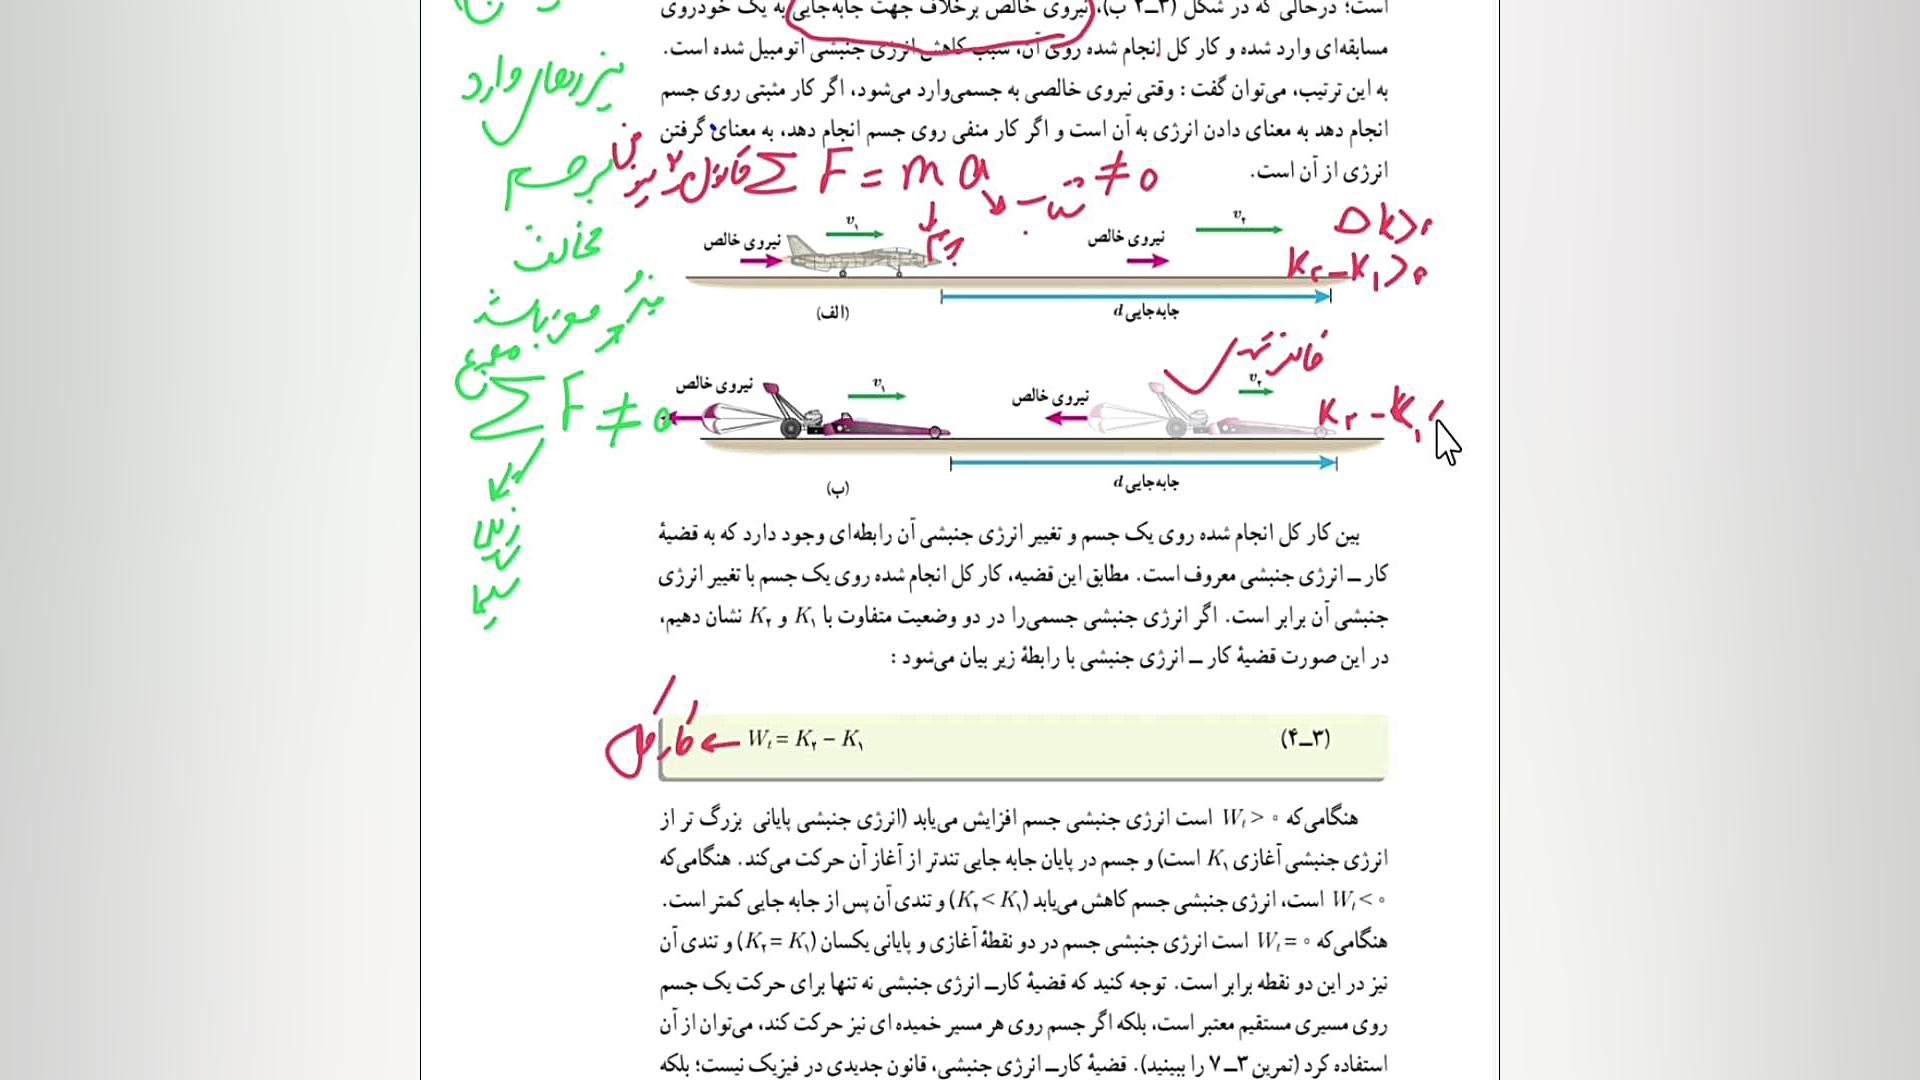 است؛ درحالی که در شکل (۳ــ۲ ب)، نیروی خالص برخلاف جهت جابه‌جایی به یک خودروی
مسابقه‌ای وارد شده و کار کل انجام شده روی آن، سبب کاهش انرژی جنبشی اتومبیل شده است.
به این ترتیب، می‌توان گفت : وقتی نیروی خالصی به جسمی‌وارد می‌شود، اگر کار مثبتی روی جسم
انجام دهد به معنای دادن انرژی به آن است و اگر کار منفی روی جسم انجام دهد، به معنای گرفتن
انرژی از آن است.
نیروهای وارد
برجسم
مخالف
صفر باشد
قانون ۲ نیوتن ΣF = ma
≠ 0
جرم
ΔK>۰
K۲ – K۱ >۰
نیروی خالص v۱ نیروی خالص v۲
جابه‌جایی d
(الف)
ΣF ≠ 0
نیروی خالص v۱ نیروی خالص v۲
K۲ – K۱
جابه‌جایی d
(ب)
بین کار کل انجام شده روی یک جسم و تغییر انرژی جنبشی آن رابطه‌ای وجود دارد که به قضیهٔ
کار ــ انرژی جنبشی معروف است. مطابق این قضیه، کار کل انجام شده روی یک جسم با تغییر انرژی
جنبشی آن برابر است. اگر انرژی جنبشی جسمی‌را در دو وضعیت متفاوت با K۱ و K۲ نشان دهیم،
در این صورت قضیهٔ کار ــ انرژی جنبشی با رابطهٔ زیر بیان می‌شود :
کار کل ← Wt = K۲ – K۱ (۳ــ۴)
هنگامی‌که Wt > ۰ است انرژی جنبشی جسم افزایش می‌یابد (انرژی جنبشی پایانی بزرگ تر از
انرژی جنبشی آغازی K۱ است) و جسم در پایان جابه جایی تندتر از آغاز آن حرکت می‌کند. هنگامی‌که
Wt < ۰ است، انرژی جنبشی جسم کاهش می‌یابد (K۲ < K۱) و تندی آن پس از جابه جایی کمتر است.
هنگامی‌که Wt = ۰ است انرژی جنبشی جسم در دو نقطهٔ آغازی و پایانی یکسان (K۲ = K۱) و تندی آن
نیز در این دو نقطه برابر است. توجه کنید که قضیهٔ کارــ انرژی جنبشی نه تنها برای حرکت یک جسم
روی مسیری مستقیم معتبر است، بلکه اگر جسم روی هر مسیر خمیده ای نیز حرکت کند، می‌توان از آن
استفاده کرد (تمرین ۳ــ۷ را ببینید). قضیهٔ کارــ انرژی جنبشی، قانون جدیدی در فیزیک نیست؛ بلکه